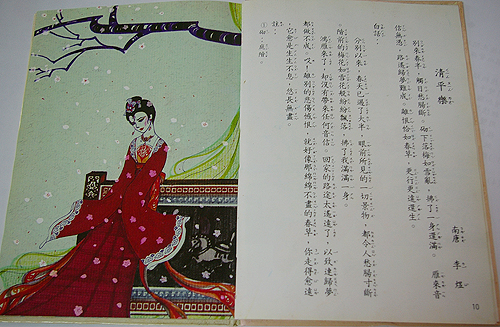 清平樂
南唐 李煜
別來春半,觸目愁腸斷。砌下落梅如雪亂,拂了一身還滿。 雁來音
信無憑,路遙歸夢難成。離恨恰如春草,更行更遠還生。
白話:
分別以來,春天已過了大半,眼前所見的一切景物,都令人愁腸寸斷
階前的梅花如雪花般紛紛飄落,拂了我滿滿一身。
鴻雁來了,却沒有帶來任何音信。回家的路途太遙遠了,以致連歸夢
都做不成。哎,離別的悲傷憾恨,就好像那綿綿不盡的春草,你走得愈遠
,它愈是生生不息,悠長無盡。
註:
①砌:庭階。
10